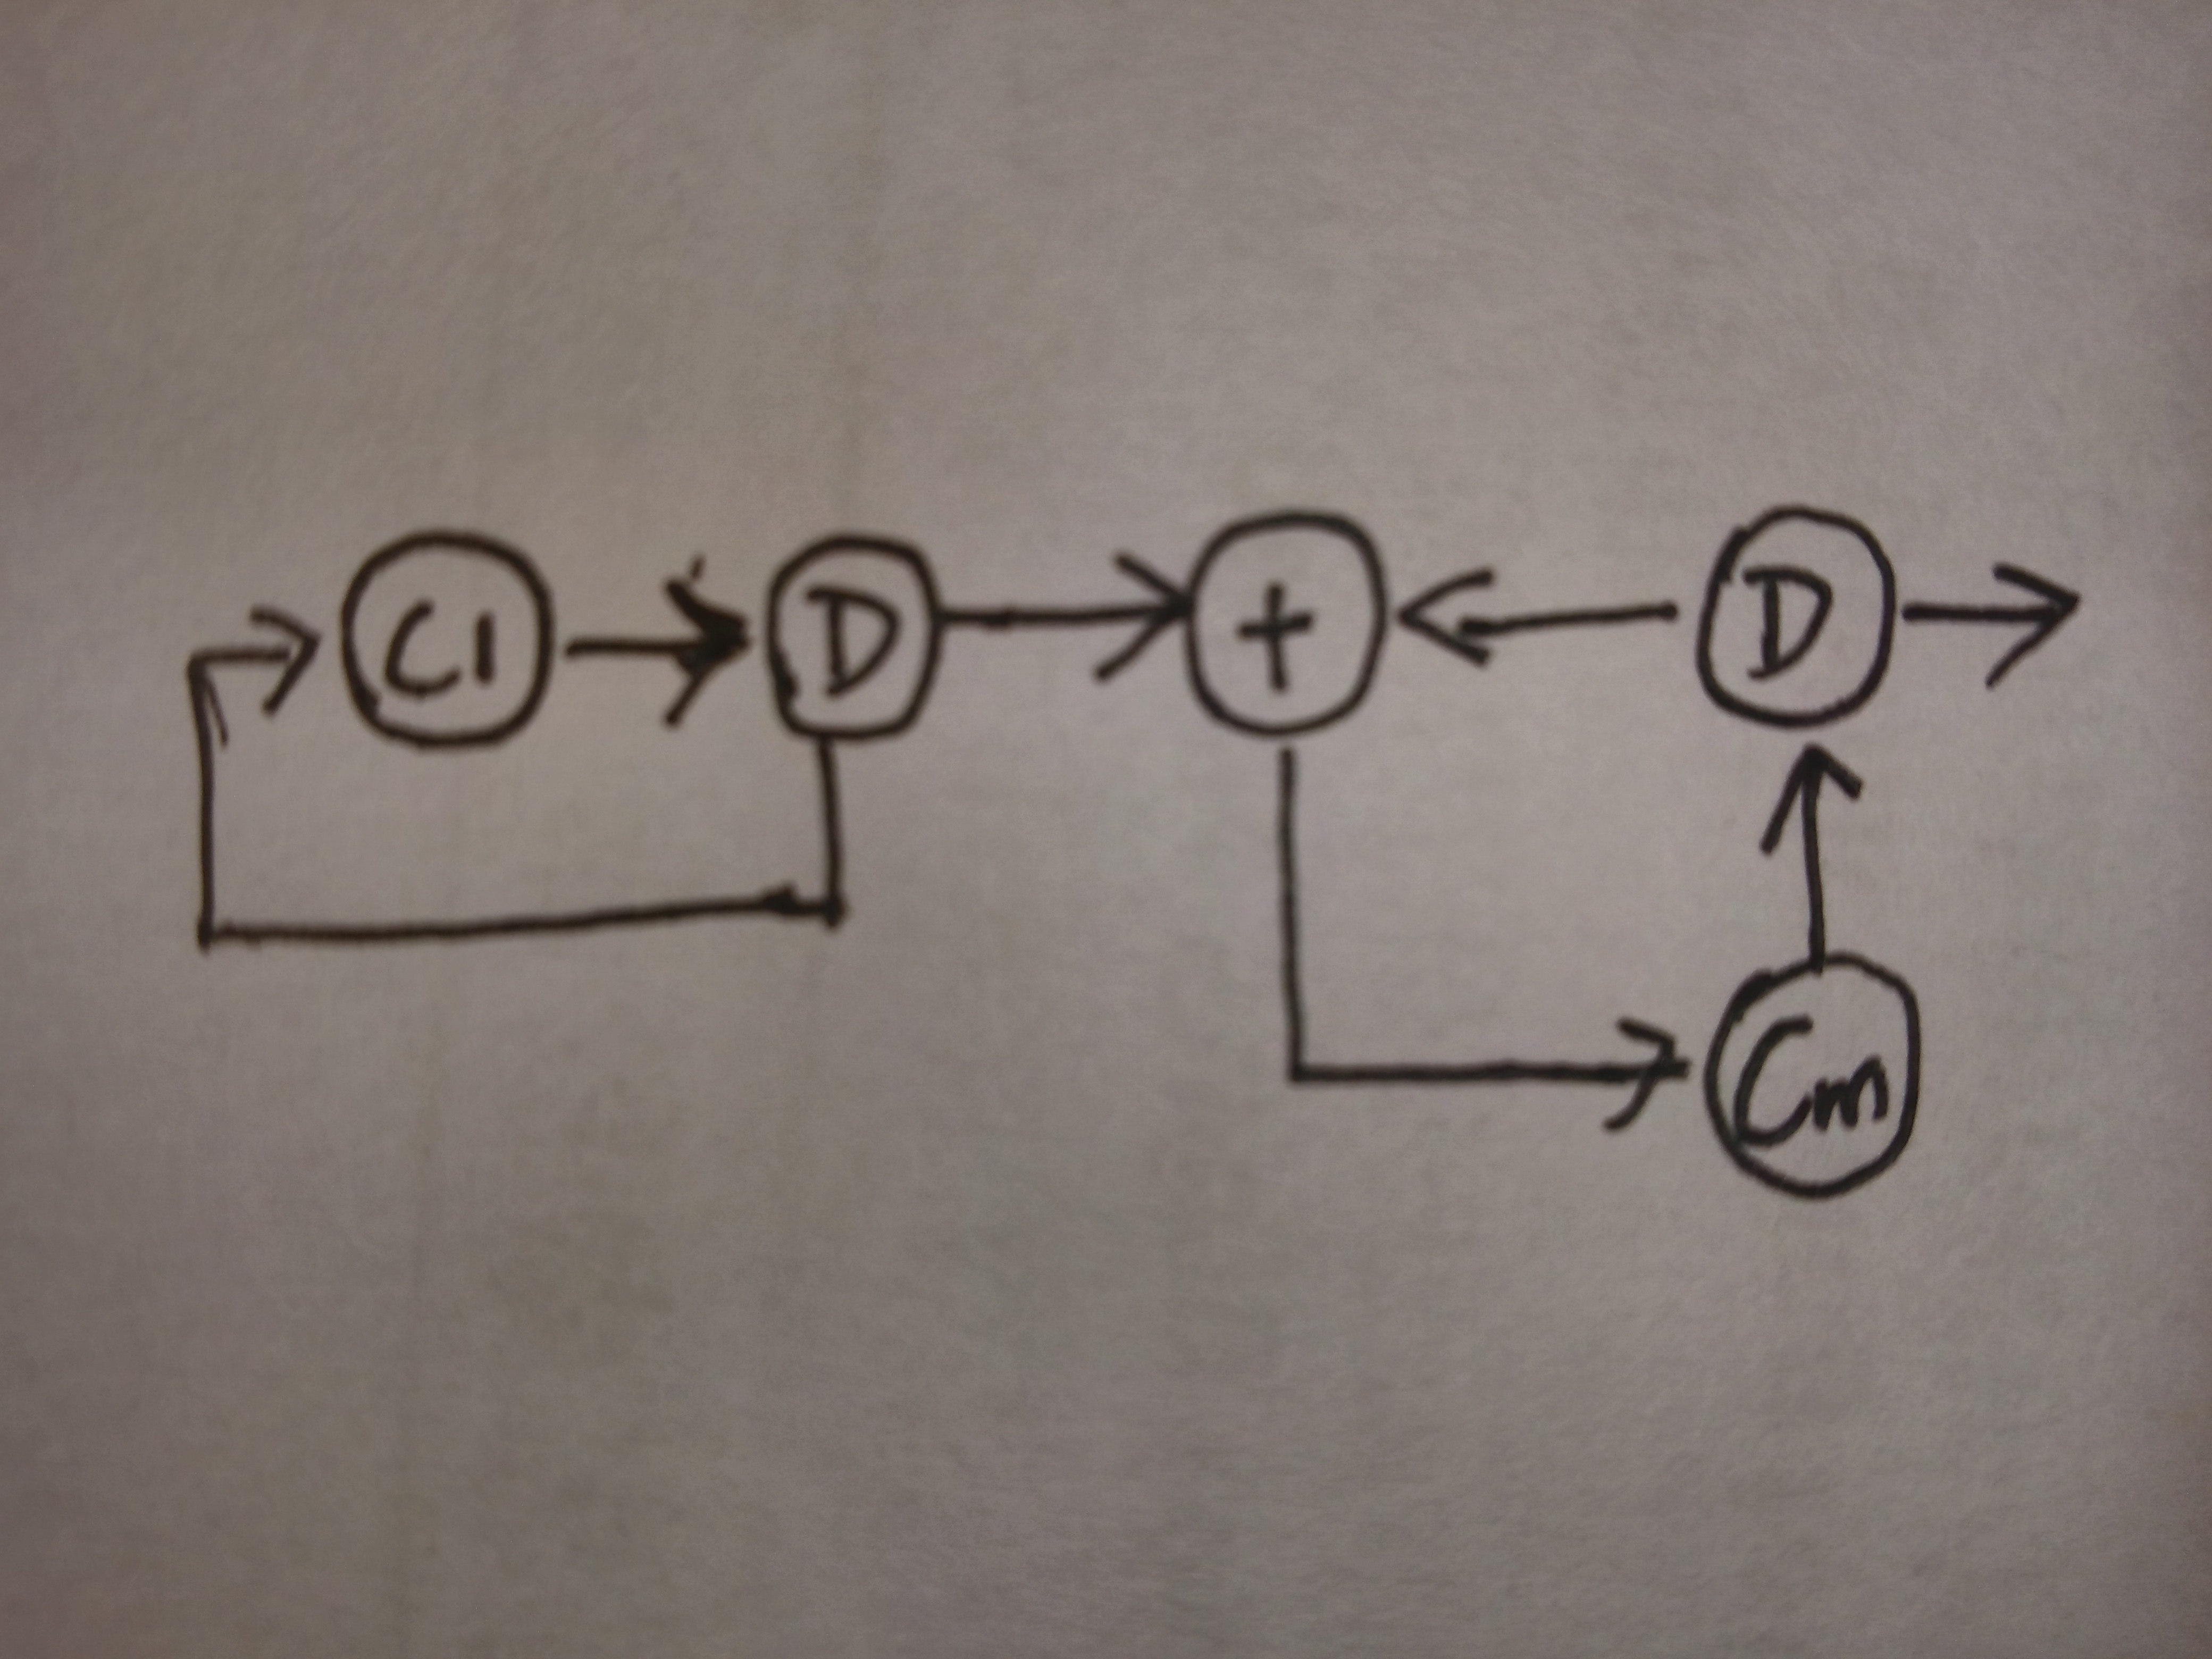 C1 D + D
Cm